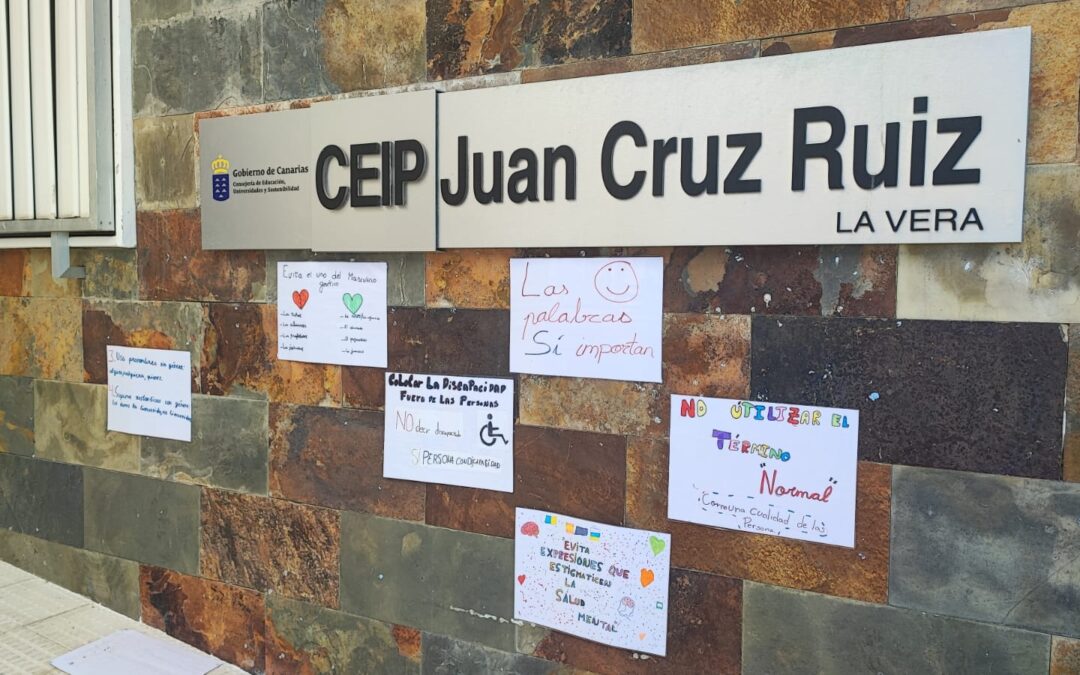 Gobierno de Canarias
Consejería de Educación,
Universidades y Sostenibilidad
CEIP Juan Cruz Ruiz
LA VERA
Evita el uso del Masculino
genérico
Las
palabras
Sí importan
3. Usa pronombres sin género:
alguien, cualquiera, quienes
COLOCAR LA DISCAPACIDAD
FUERA DE LAS PERSONAS
NO decir discapacitado
SI PERSONA CON DISCAPACIDAD
NO UTILIZAR EL
TÉRMINO
"Normal"
Como una cualidad de las
Persona
EVITA
EXPRESIONES QUE
ESTIGMATICEN
LA
SALUD
MENTAL